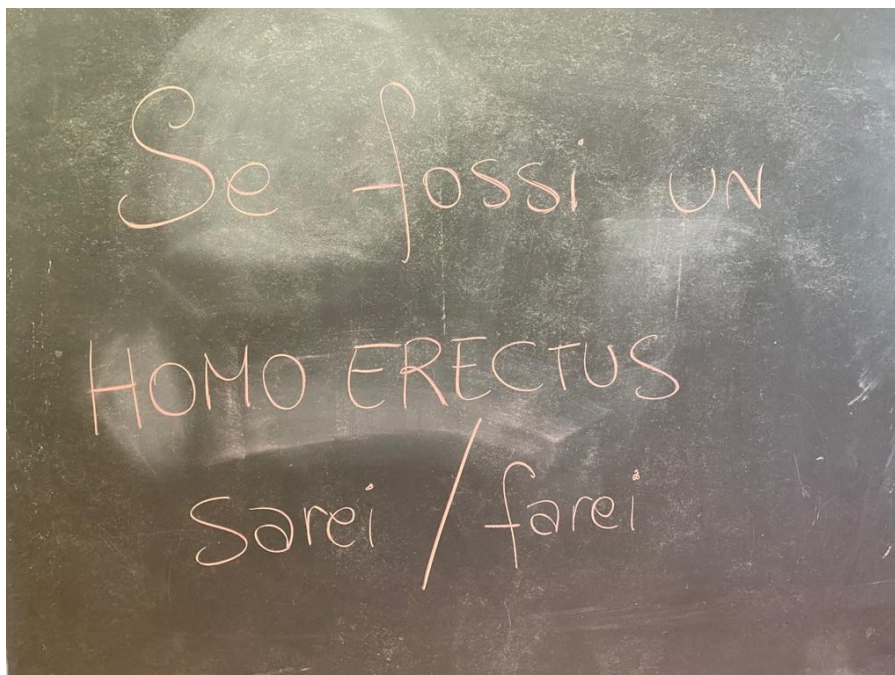 Se fossi un
HOMO ERECTUS
sarei / farei